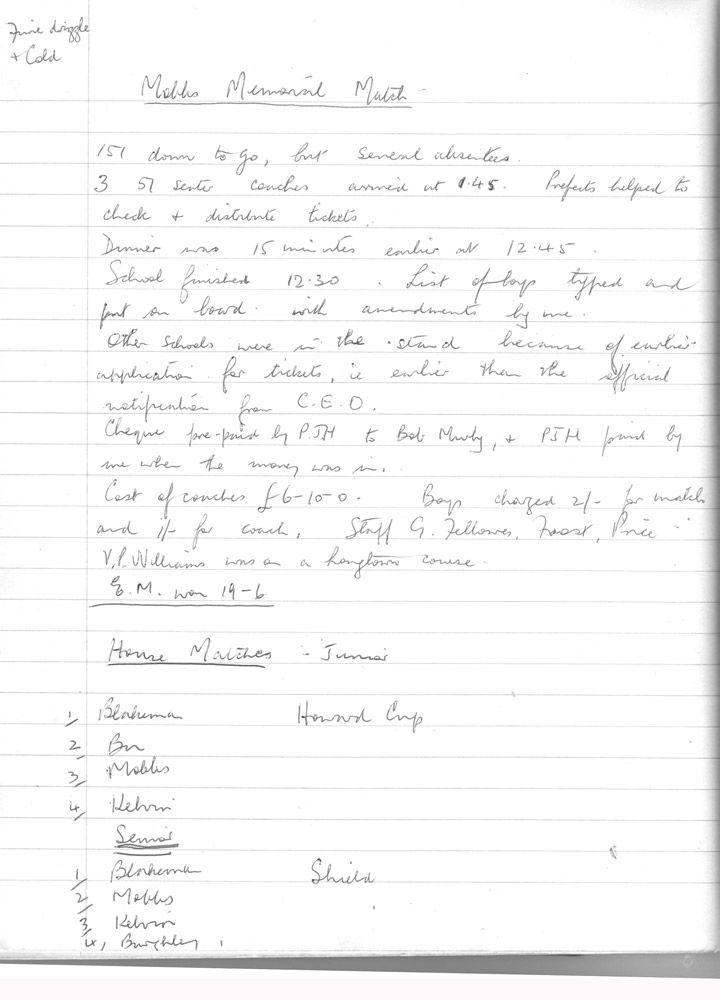 Fine drizzle
+ Cold
Mobbs Memorial Match -
151 down to go, but several absentees.
3 51 seater coaches arrived at 1.45. Prefects helped to
check + distribute tickets.
Dinner was 15 minutes earlier at 12.45.
School finished 12.30. List of boys typed and
put on board. with amendments by me.
Other Schools were in the stand because of earlier
application for tickets, ie earlier than the official
notification from C.E.O.
Cheque pre-paid by PJH to Bob , + PJH paid by
me when the money was in.
Cost of coaches £6-10-0. Boys charged 2/- for match
and 1/- for coach. Staff G. Fellowes, Frost, Price
V.P. Williams was on a course.
E.M. won 19-6
House Matches - Junior
1/ Blakeman Howard Cup
2 Bur
3/ Mobbs
4/ Kelvin
Senior
1/ Blakeman Shield
2/ Mobbs
3/ Kelvin
4, Burghley